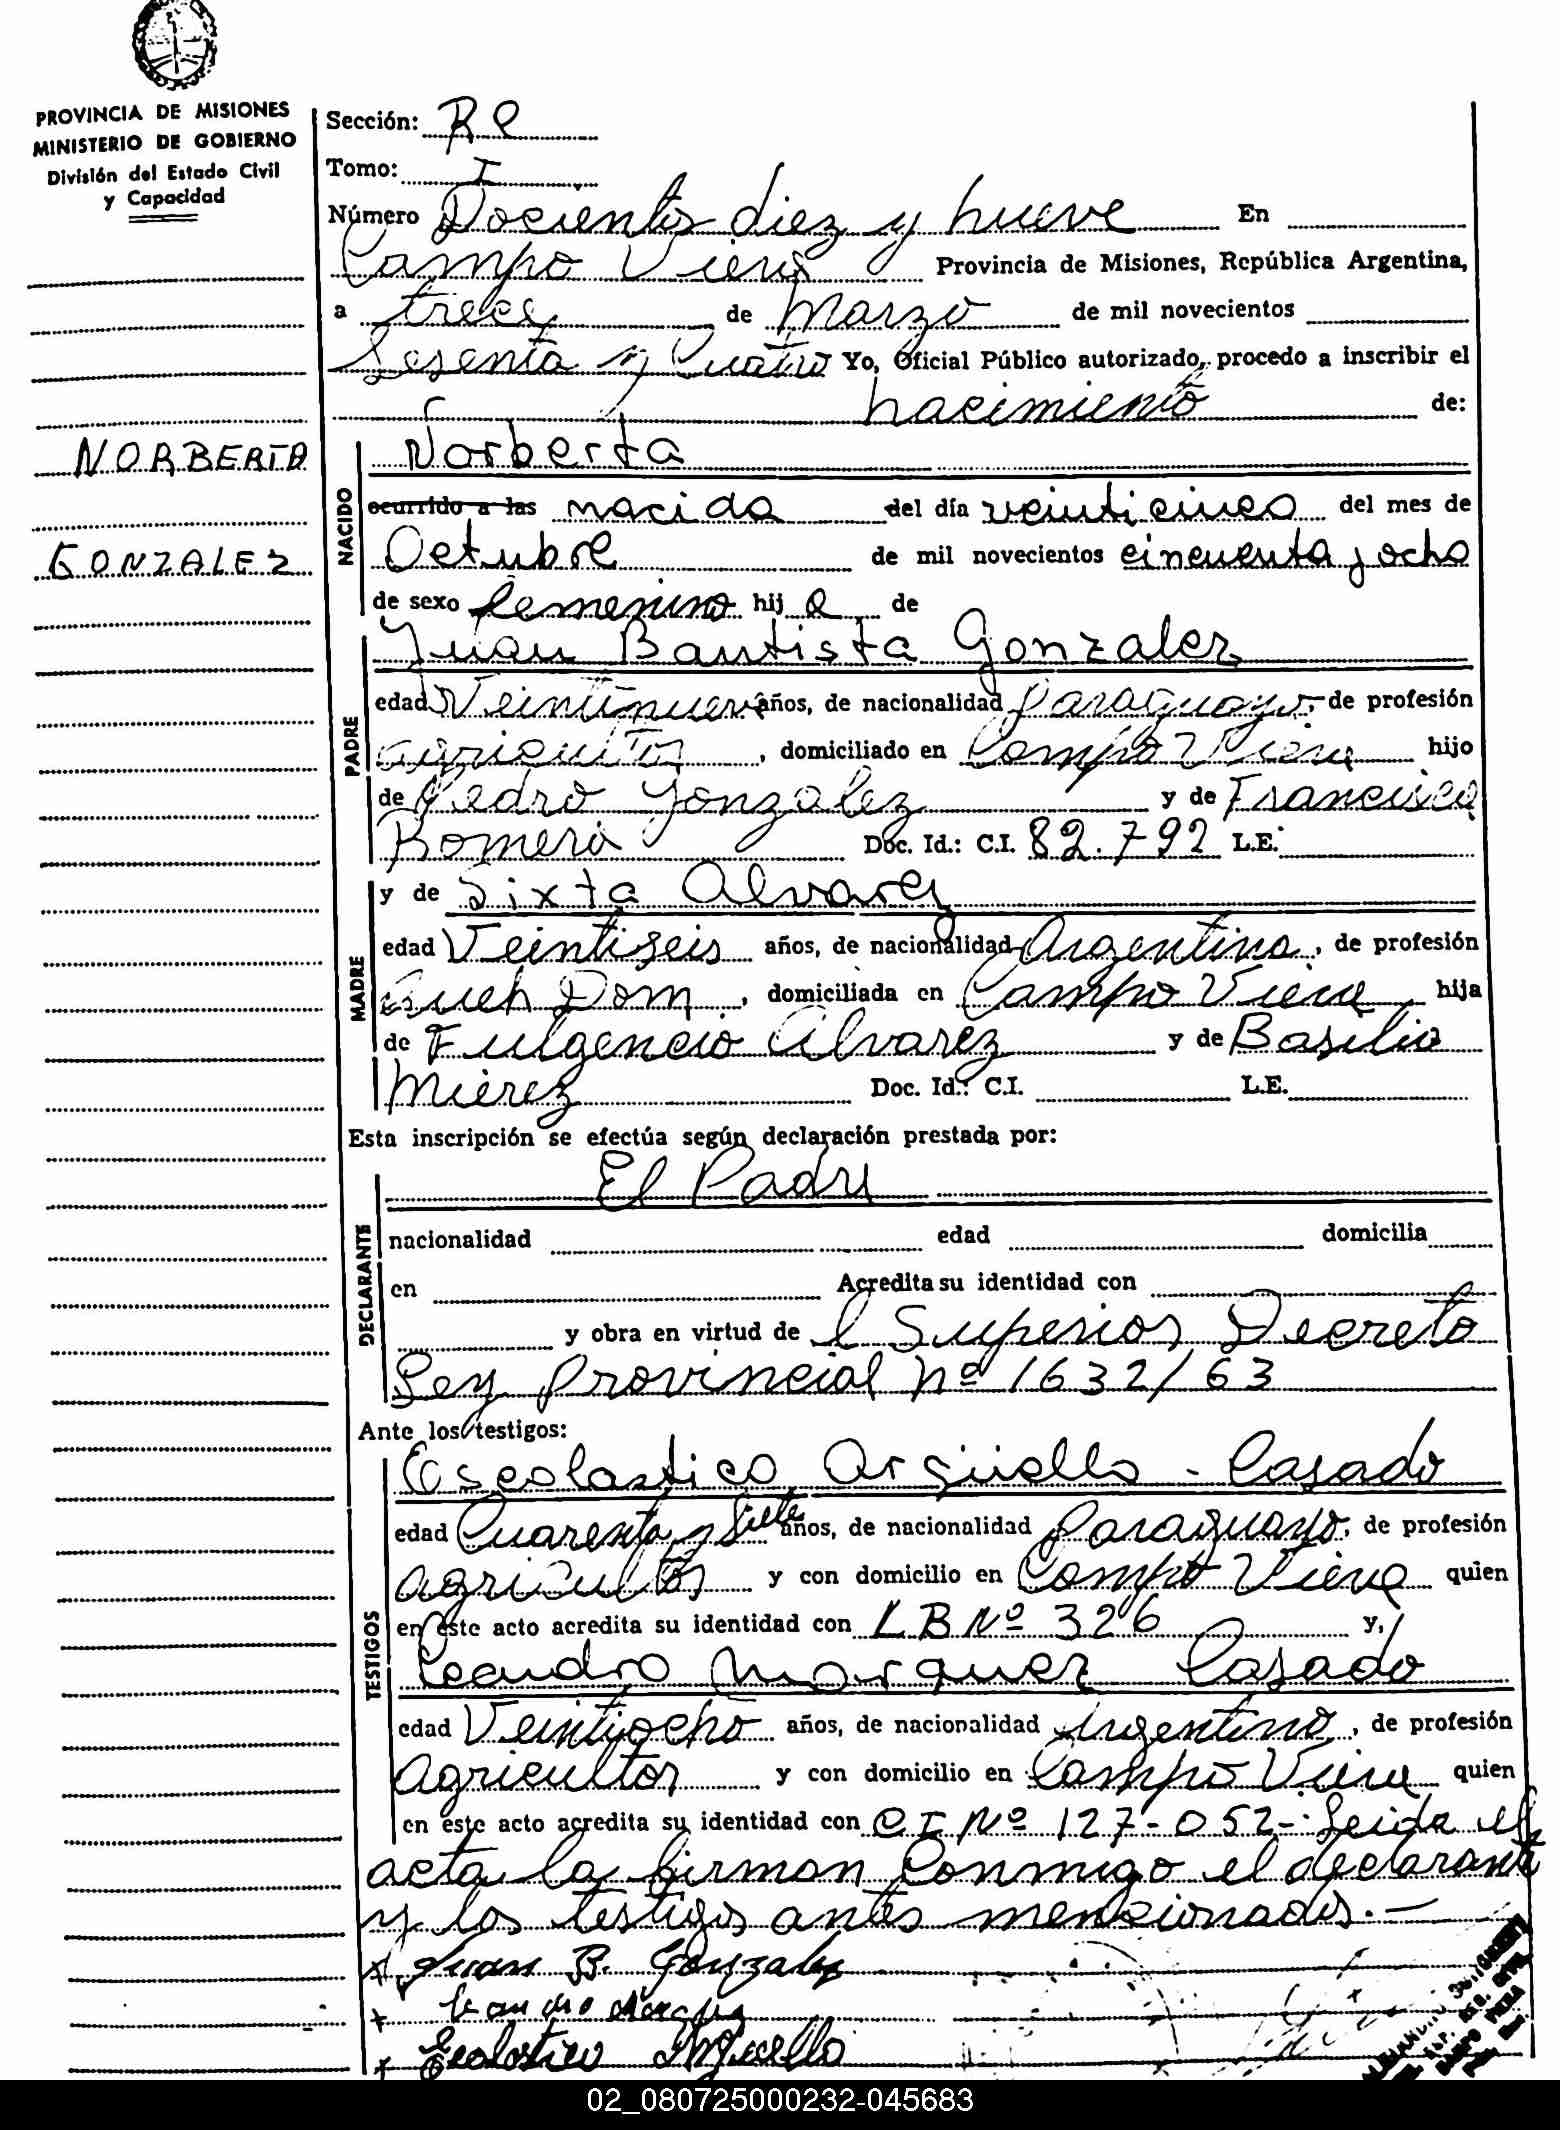 PROVINCIA DE MISIONES
MINISTERIO DE GOBIERNO
División del Estado Civil
y Capacidad
NORBERTA
GONZALEZ
Sección: RP
Tomo: I
Número Docientos diez y nueve En
Campo Viera Provincia de Misiones, República Argentina,
a trece de Marzo de mil novecientos
Sesenta y Cuatro Yo, Oficial Público autorizado, procedo a inscribir el
nacimiento de:
NACIDO
Norberta
ocurrido a las nacida del día veinticinco del mes de
Octubre de mil novecientos cincuenta y ocho
de sexo femenino hij a de
PADRE
Juan Bautista Gonzalez
edad Veintinueve años, de nacionalidad Paraguayo, de profesión
agricultor, domiciliado en Campo Viera hijo
de Pedro Gonzalez y de Francisca
Romero Doc. Id.: C.I. 82.792 L.E.
MADRE
y de Sixta Alvarez
edad Veintiseis años, de nacionalidad Argentina, de profesión
Queh Dom, domiciliada en Campo Viera hija
de Fulgencio Alvarez y de Basilia
Mierez Doc. Id.: C.I. L.E.
Esta inscripción se efectúa según declaración prestada por:
DECLARANTE
El Padre
nacionalidad edad domicilia
en Acredita su identidad con
y obra en virtud de l Superior Decreto
Ley Provincial nº 1632/63
Ante los testigos:
TESTIGOS
Escolastico Argüello - Casado
edad Cuarenta y Siete años, de nacionalidad Paraguayo, de profesión
agricultor y con domicilio en Campo Viera quien
en este acto acredita su identidad con LB Nº 326 y,
Leandro Marquez Casado
edad Veintiocho años, de nacionalidad Argentino, de profesión
Agricultor y con domicilio en Campo Viera quien
en este acto acredita su identidad con CI Nº 127-052-. Leida el
acta la firman Conmigo el declarante
y los testigos antes mencionados.-
x Juan B. Gonzalez
x Leandro Marquez
x Escolastico Arguello
02_080725000232-045683